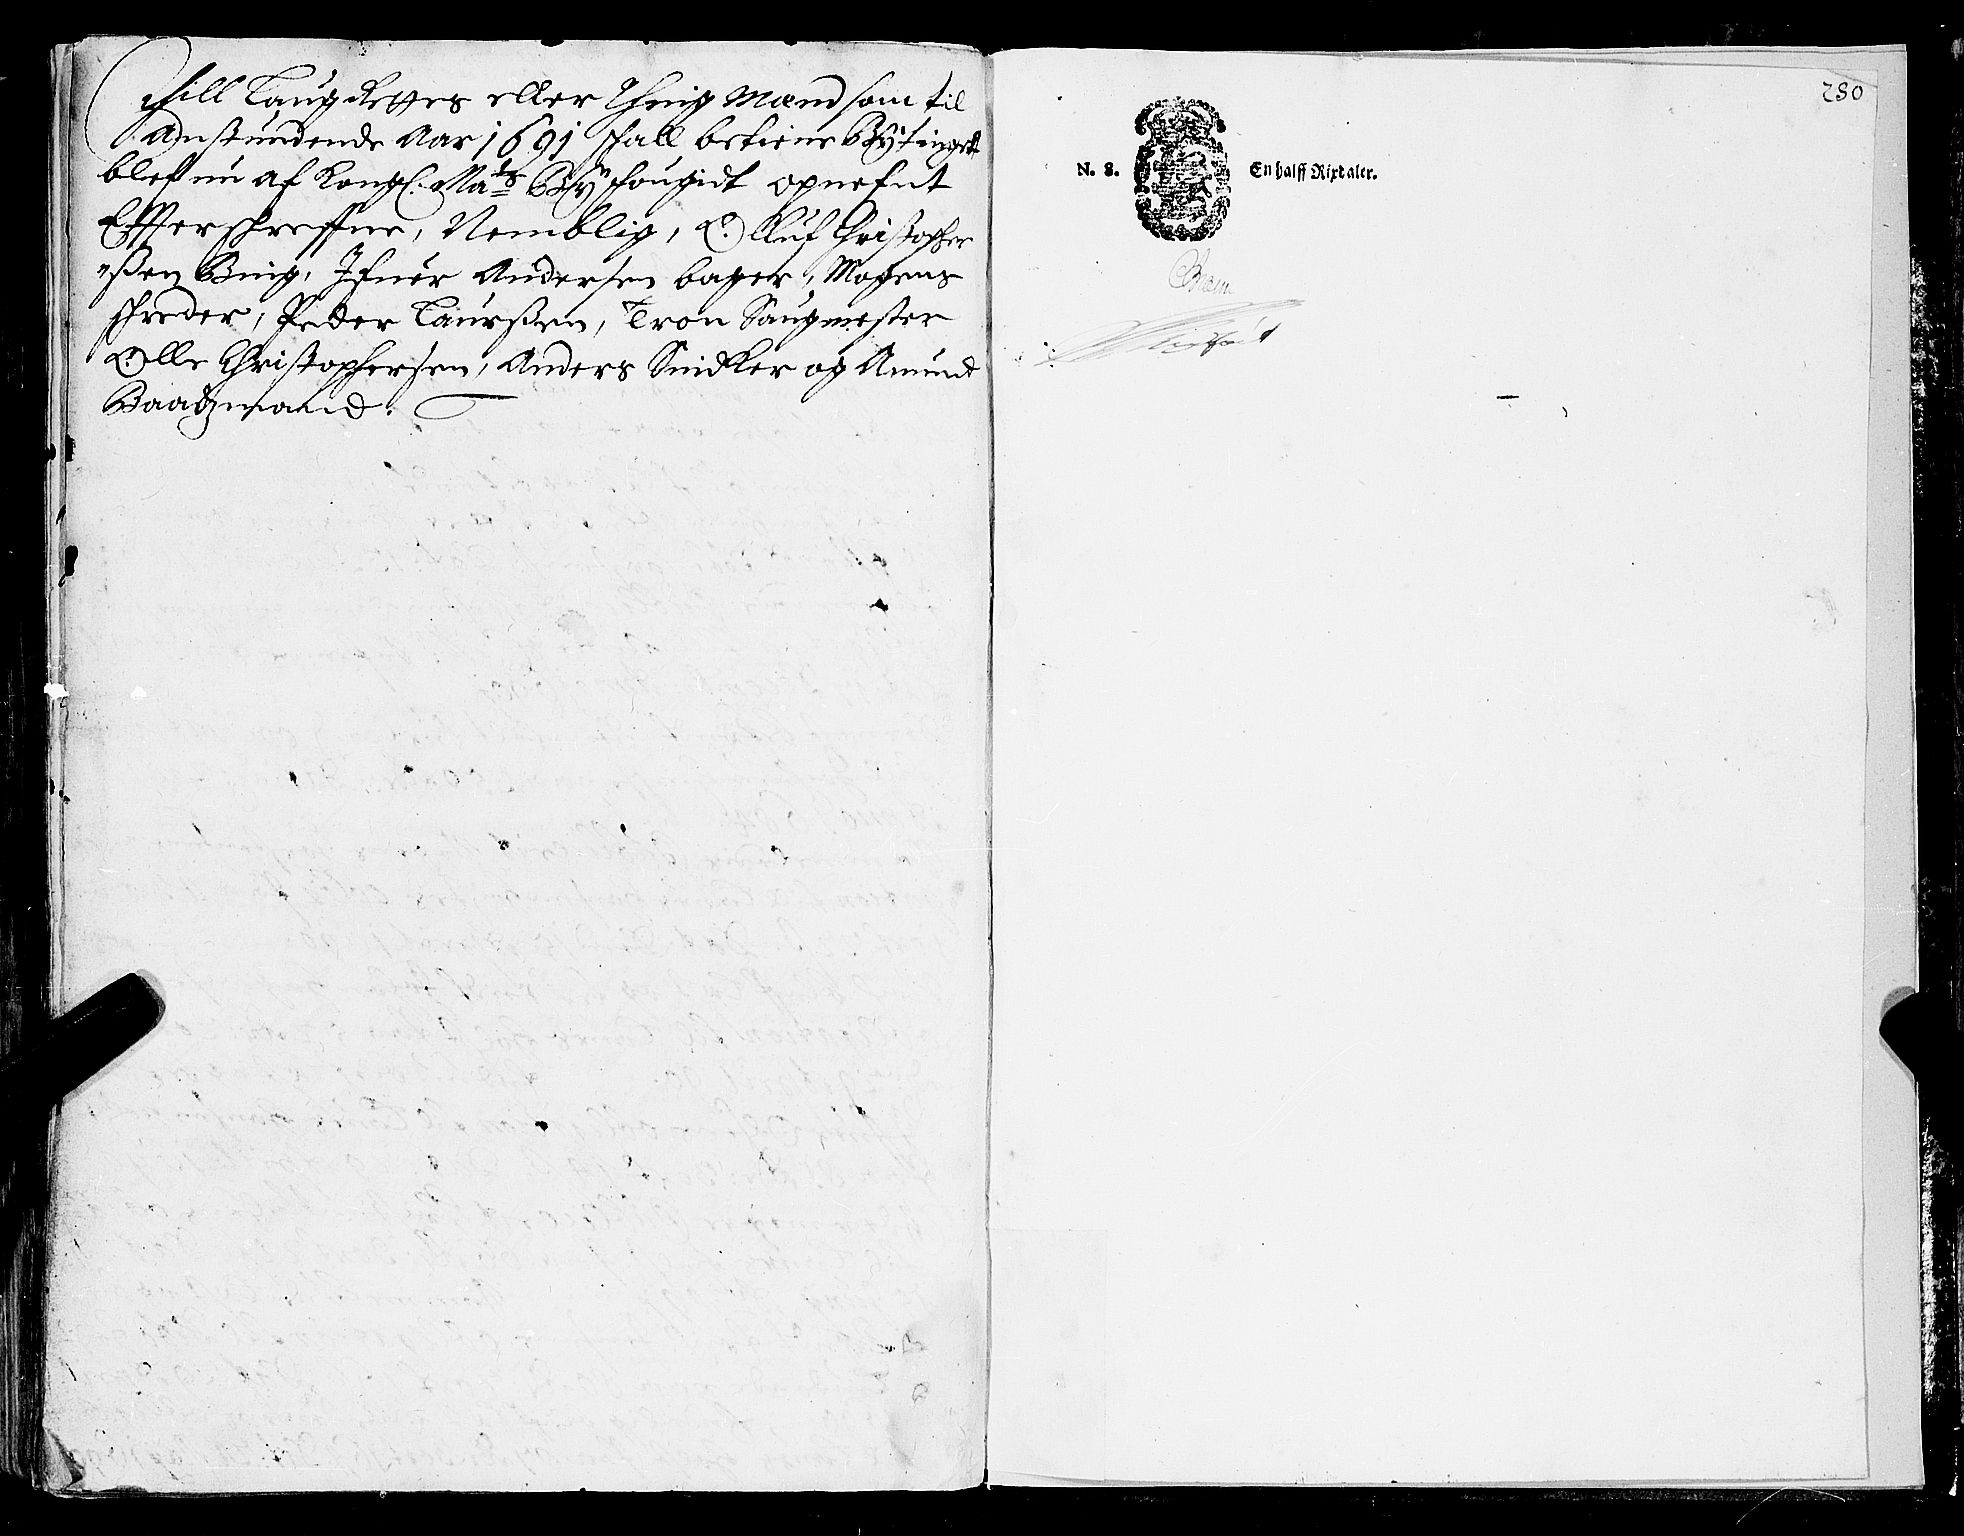 Till Laug Rettes eller Thing Mænd som til
Anstundende Aar 1691 schall betiene Bytinget
blef nu af Kongl. Ma:ts Byschougidt opnefnt
Effterschreffne, Nemblig, Olluf Christopher
"ßen Bing, Ifuer Andersen bager, Mogens
schreder, Peder Laurßen, Tron Saugmester
Olle Christophersen, Anders Snidker og Amund
Baadzmand.
280
N. 8. En halff Rixdaler.